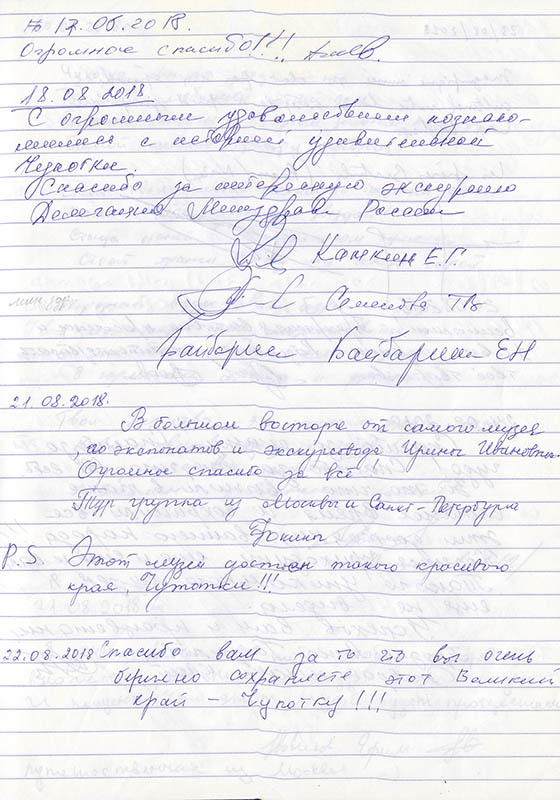 17.08.2018.
Огромное спасибо!!!
18.08.2018
С огромным удовольствием познако-
мились с историей удивительной
Чукотки.
Спасибо за интересную экскурсию
Делегация Минздрава России
Камкин Е.Г.
Семёнова Т.В.
Байбарина Е.Н
21.08.2018.
В большом восторге от самого музея
, экспонатов и экскурсовода Ирины Ивановны.
Огромное спасибо за всё!
Тур группа из Москвы и Санкт-Петербурга
P.S. Этот музей достоин такого красивого
края, Чукотки!!!
22.08.2018 Спасибо вам за то что вы очень
бережно сохраняете этот Великий
край - Чукотку!!!